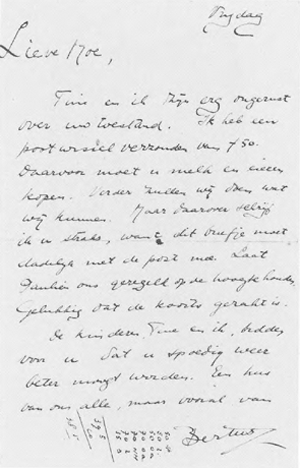 Vrijdag
Lieve Moe,
Tine en ik zijn erg ongerust
over uw toestand. Ik heb een
postwissel verzonden van f 50.
Daarvoor moet u melk en eieren
kopen. Verder zullen wij doen wat
wij kunnen. Maar daarover schrijf
ik u straks, want dit briefje moet
dadelijk met de post mee. Laat
ons geregeld op de hoogte houden.
Gelukkig dat de koorts gezakt is.
De kinderen, Tine en ik, bidden
voor u dat u spoedig weer
beter moogt worden. Een kus
van ons alle, maar vooral van
Bertus